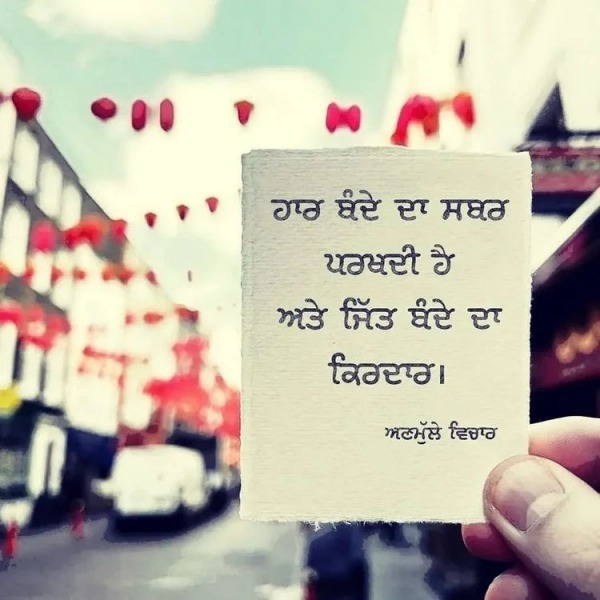 ਹਾਰ ਬੰਦੇ ਦਾ ਸਬਰ
ਪਰਖਦੀ ਹੈ
ਅਤੇ ਜਿੱਤ ਬੰਦੇ ਦਾ
ਕਿਰਦਾਰ।
ਅਣਮੁੱਲੇ ਵਿਚਾਰ